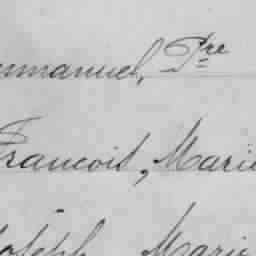 mmanuel, Pre
Francois, Marie
Joseph Marie